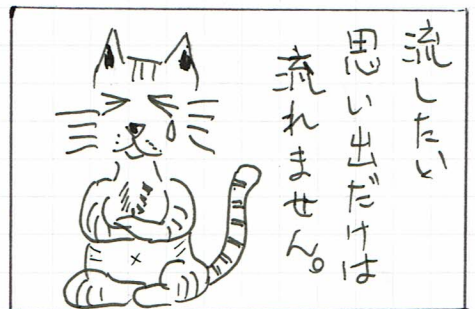 流したい
思い出だけは
流れません。